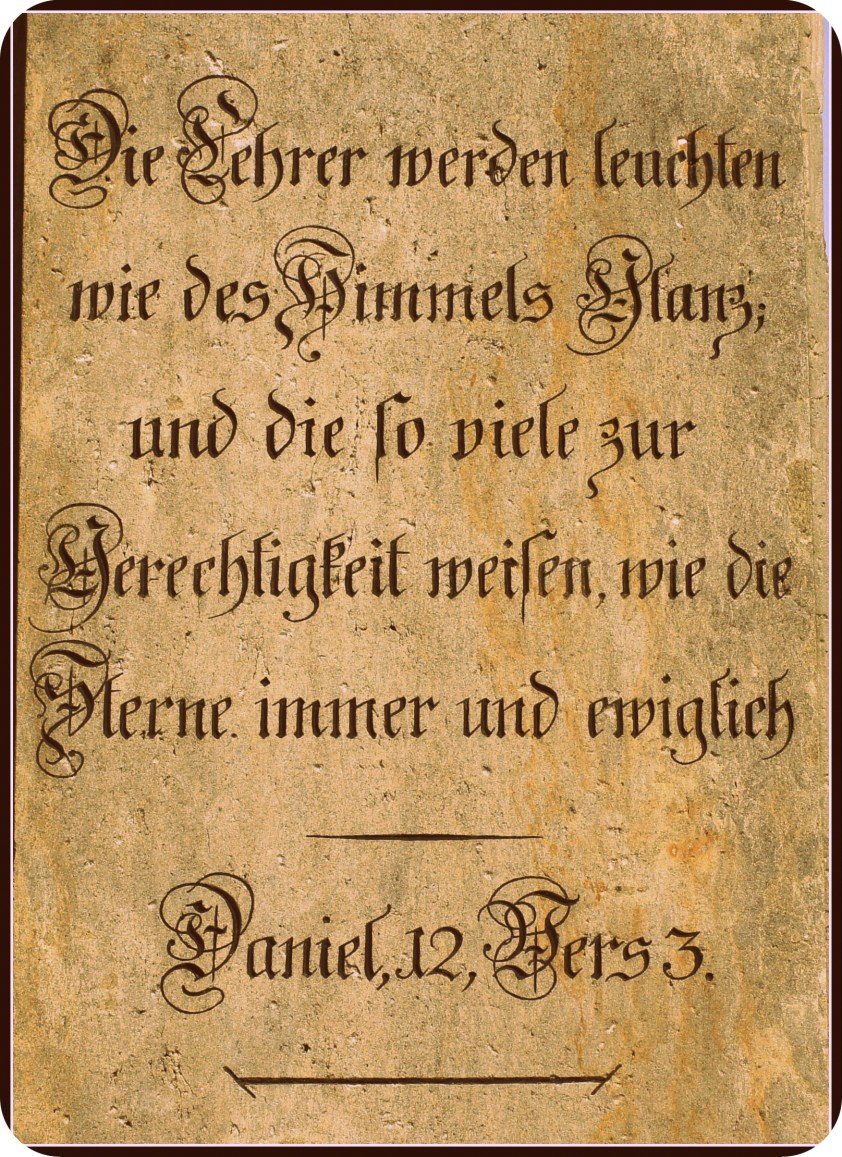 Die Lehrer werden leuchten
wie des Himmels Glanz;
und die ſo viele zur
Gerechtigkeit weiſen, wie die
Sterne. immer und ewiglich
Daniel, 12, Vers 3.